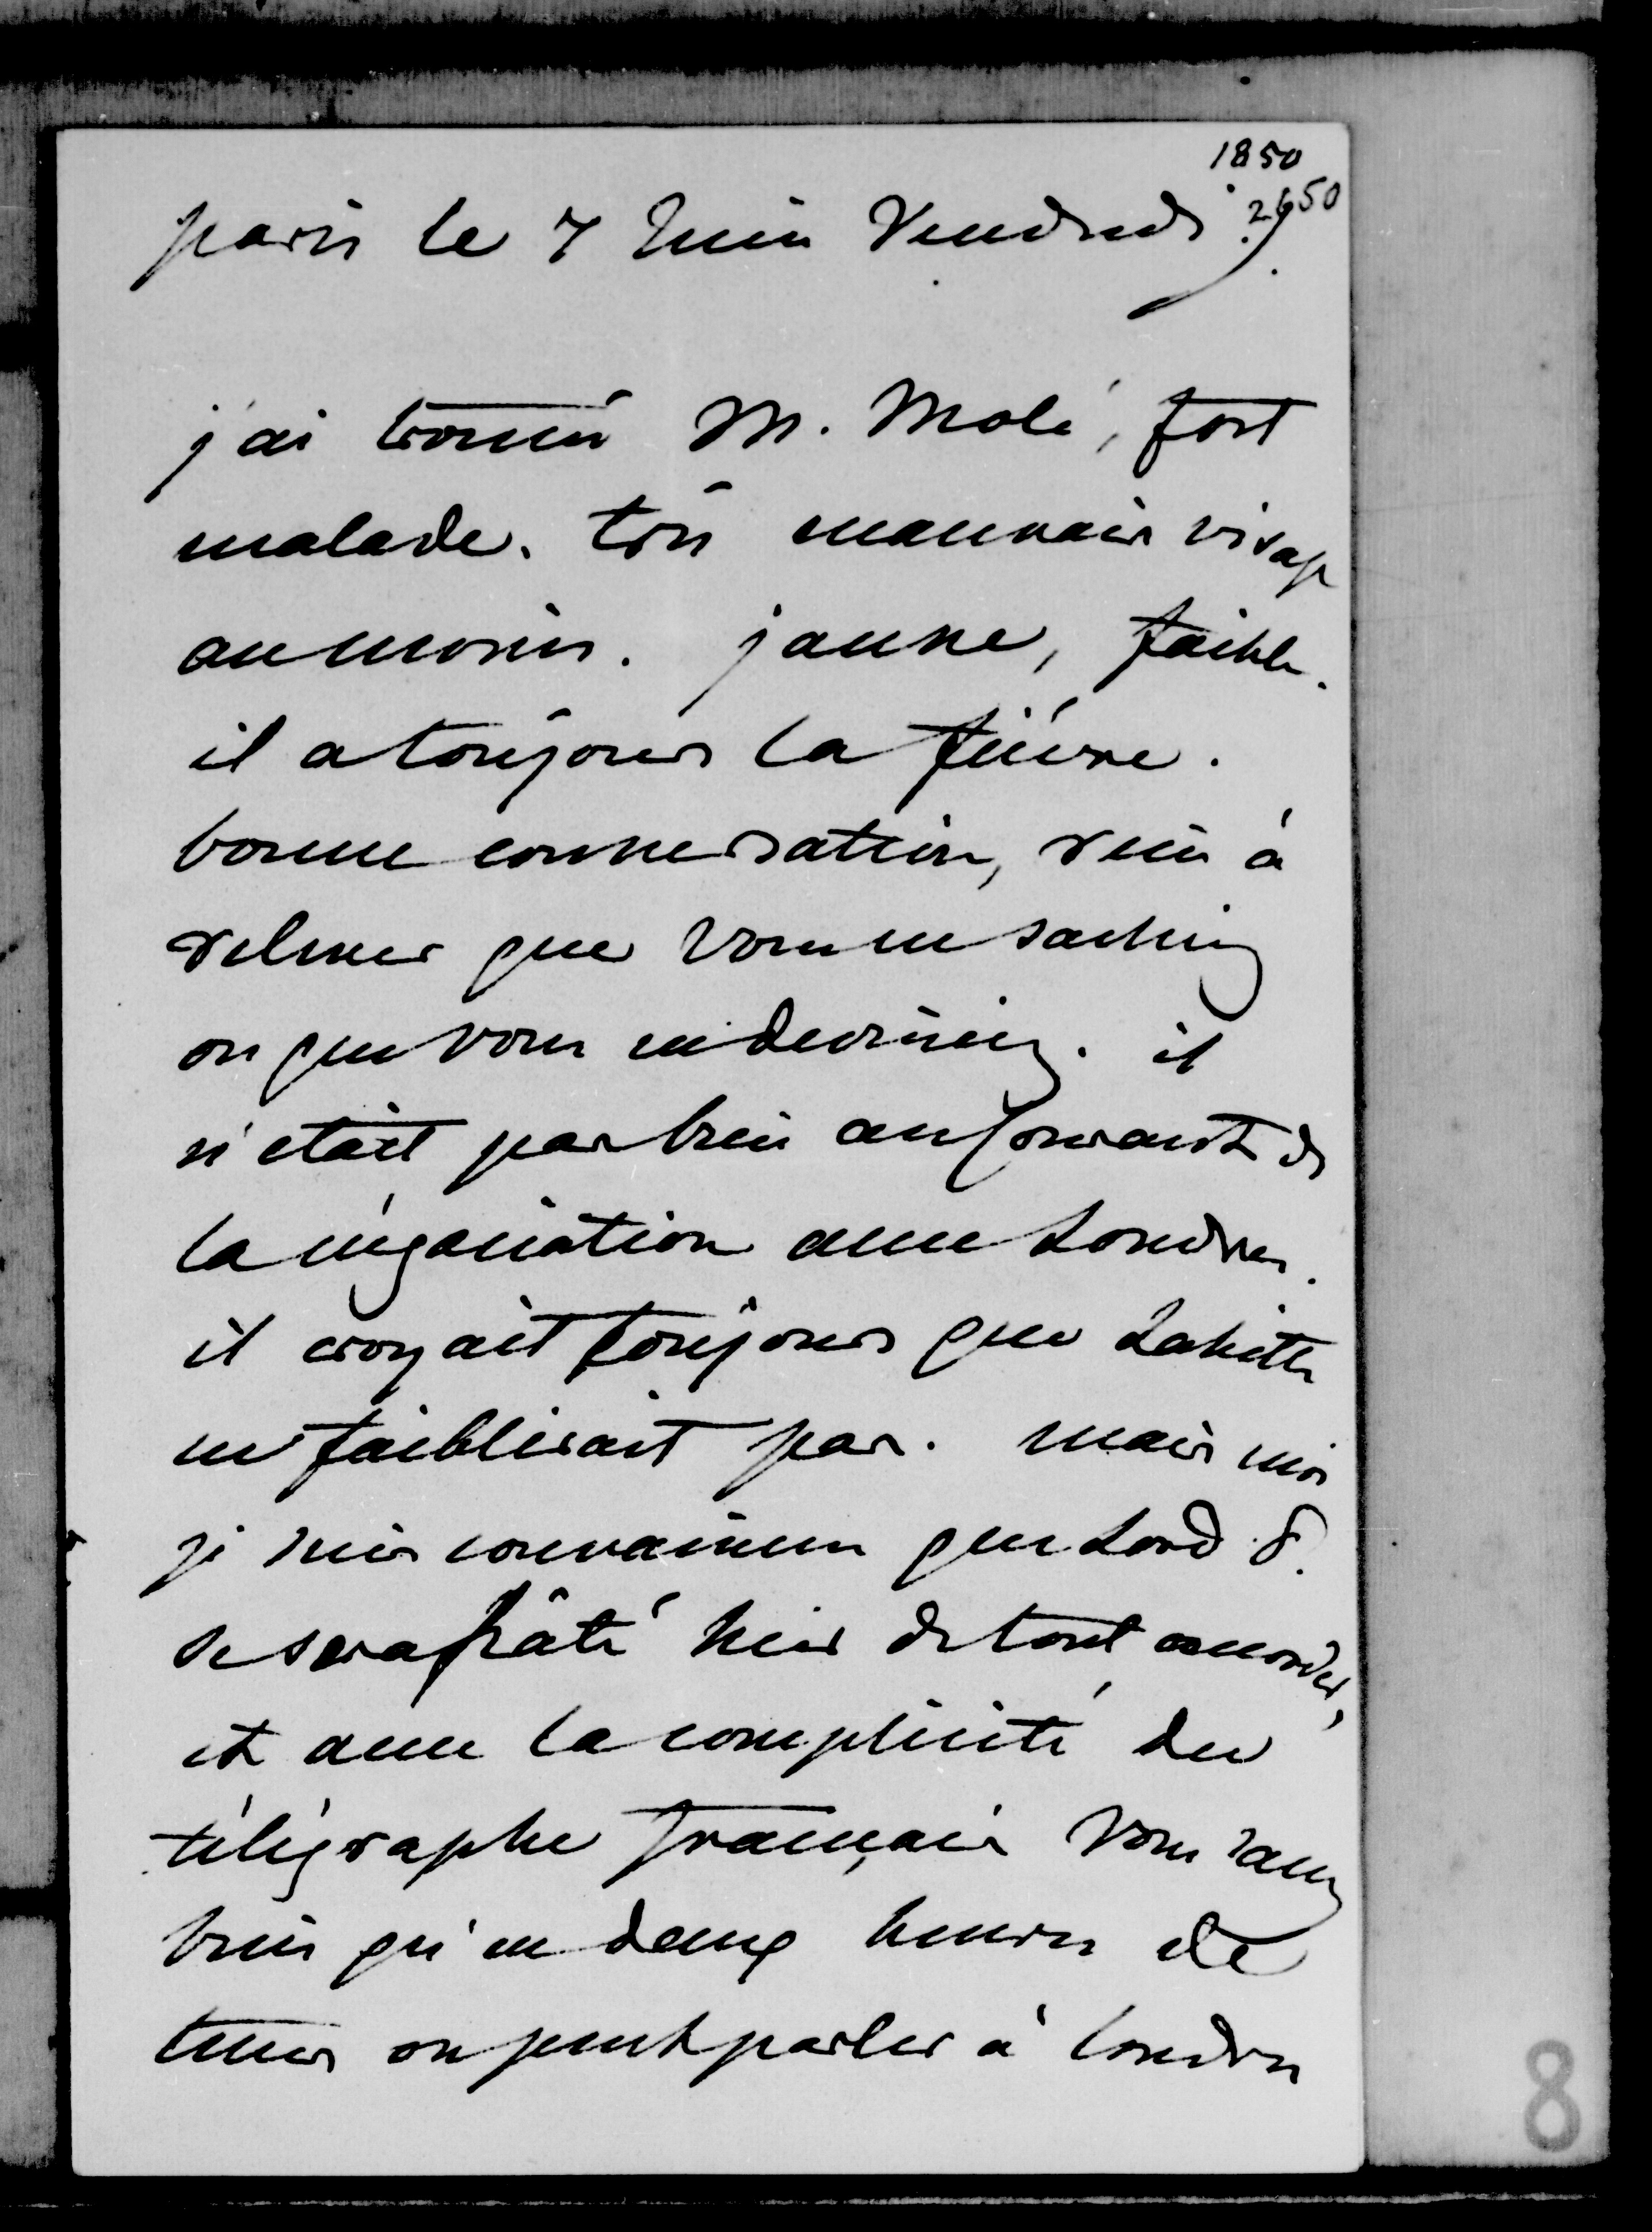 1850
2650
paris le 7 Juin Vendredi.
j'ai trouvé M. Molé, fort
malade. très mauvais visage
au moins. jaune, faible.
il a toujours la fièvre.
bonne conversation, rien à
relever que vous ne sachiez
ou que vous ne deviniez. il
n'etait pas bien au courant de
la négociation avec Londres.
il croyait toujours que Lahitte
ne faiblirait pas. mais moi
je suis convaincue que Lord P.
se sera hâté hier de tout accorder,
et avec la complicité du
télégraphe français vous savez
bien qu'en deux heures de
tems on peut parler à Londres
8